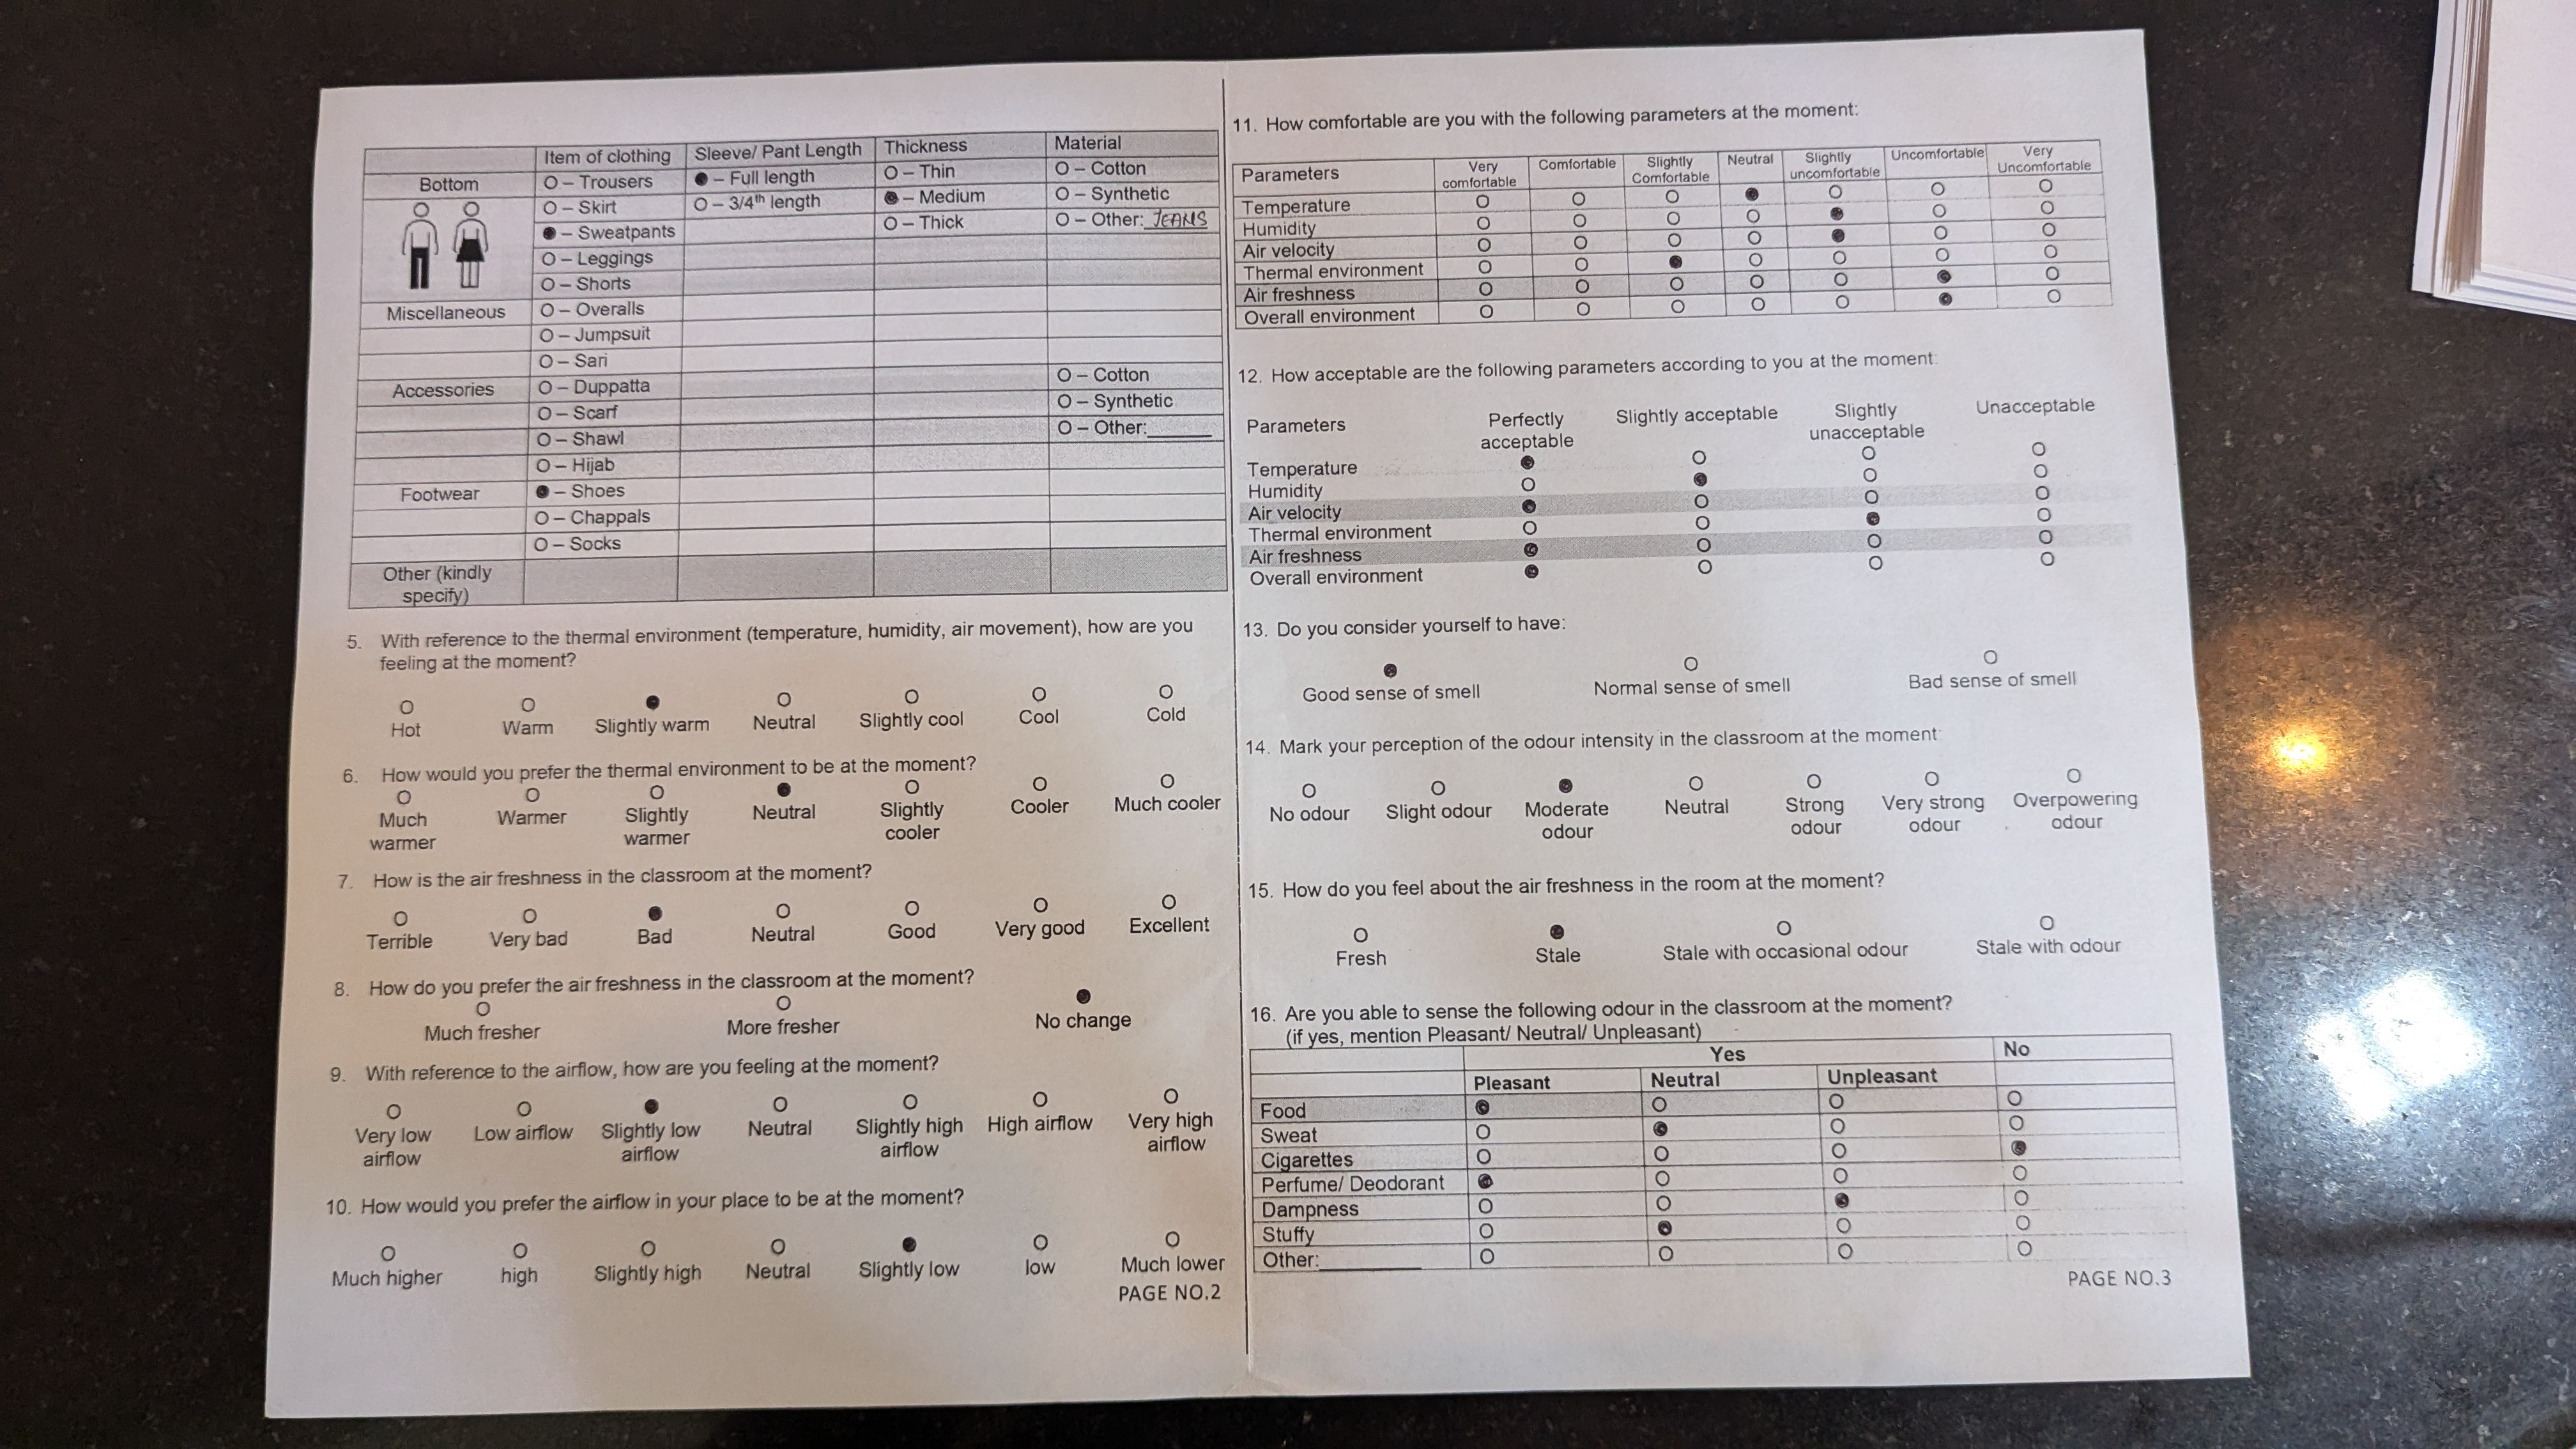 Item of clothing Sleeve/ Pant Length Thickness Material
Bottom O – Trousers ● – Full length O – Thin O – Cotton
O – Skirt O – 3/4th length ● – Medium O – Synthetic
● – Sweatpants O – Thick O – Other: JEANS
O – Leggings
O – Shorts
Miscellaneous O – Overalls
O – Jumpsuit
O – Sari
Accessories O – Duppatta O – Cotton
O – Scarf O – Synthetic
O – Shawl O – Other:______
O – Hijab
Footwear ● – Shoes
O – Chappals
O – Socks
Other (kindly
specify)
5. With reference to the thermal environment (temperature, humidity, air movement), how are you
feeling at the moment?
O O ● O O O O
Hot Warm Slightly warm Neutral Slightly cool Cool Cold
6. How would you prefer the thermal environment to be at the moment?
O O O ● O O O
Much Warmer Slightly Neutral Slightly Cooler Much cooler
warmer warmer cooler
7. How is the air freshness in the classroom at the moment?
O O ● O O O O
Terrible Very bad Bad Neutral Good Very good Excellent
8. How do you prefer the air freshness in the classroom at the moment?
O O ●
Much fresher More fresher No change
9. With reference to the airflow, how are you feeling at the moment?
O O ● O O O O
Very low Low airflow Slightly low Neutral Slightly high High airflow Very high
airflow airflow airflow airflow
10. How would you prefer the airflow in your place to be at the moment?
O O O O ● O O
Much higher high Slightly high Neutral Slightly low low Much lower
PAGE NO.2
11. How comfortable are you with the following parameters at the moment:
Parameters Very Comfortable Slightly Neutral Slightly Uncomfortable Very
comfortable Comfortable uncomfortable Uncomfortable
Temperature O O O ● O O O
Humidity O O O O ● O O
Air velocity O O O O ● O O
Thermal environment O O ● O O O O
Air freshness O O O O O ● O
Overall environment O O O O O ● O
12. How acceptable are the following parameters according to you at the moment:
Parameters Perfectly Slightly acceptable Slightly Unacceptable
acceptable unacceptable
Temperature ● O O O
Humidity O ● O O
Air velocity ● O O O
Thermal environment O O ● O
Air freshness ● O O O
Overall environment ● O O O
13. Do you consider yourself to have:
● O O
Good sense of smell Normal sense of smell Bad sense of smell
14. Mark your perception of the odour intensity in the classroom at the moment:
O O ● O O O O
No odour Slight odour Moderate Neutral Strong Very strong Overpowering
odour odour odour odour
15. How do you feel about the air freshness in the room at the moment?
O ● O O
Fresh Stale Stale with occasional odour Stale with odour
16. Are you able to sense the following odour in the classroom at the moment?
(if yes, mention Pleasant/ Neutral/ Unpleasant)
Yes No
Pleasant Neutral Unpleasant
Food ● O O O
Sweat O ● O O
Cigarettes O O O ●
Perfume/ Deodorant ● O O O
Dampness O O ● O
Stuffy O ● O O
Other:__________ O O O O
PAGE NO.3